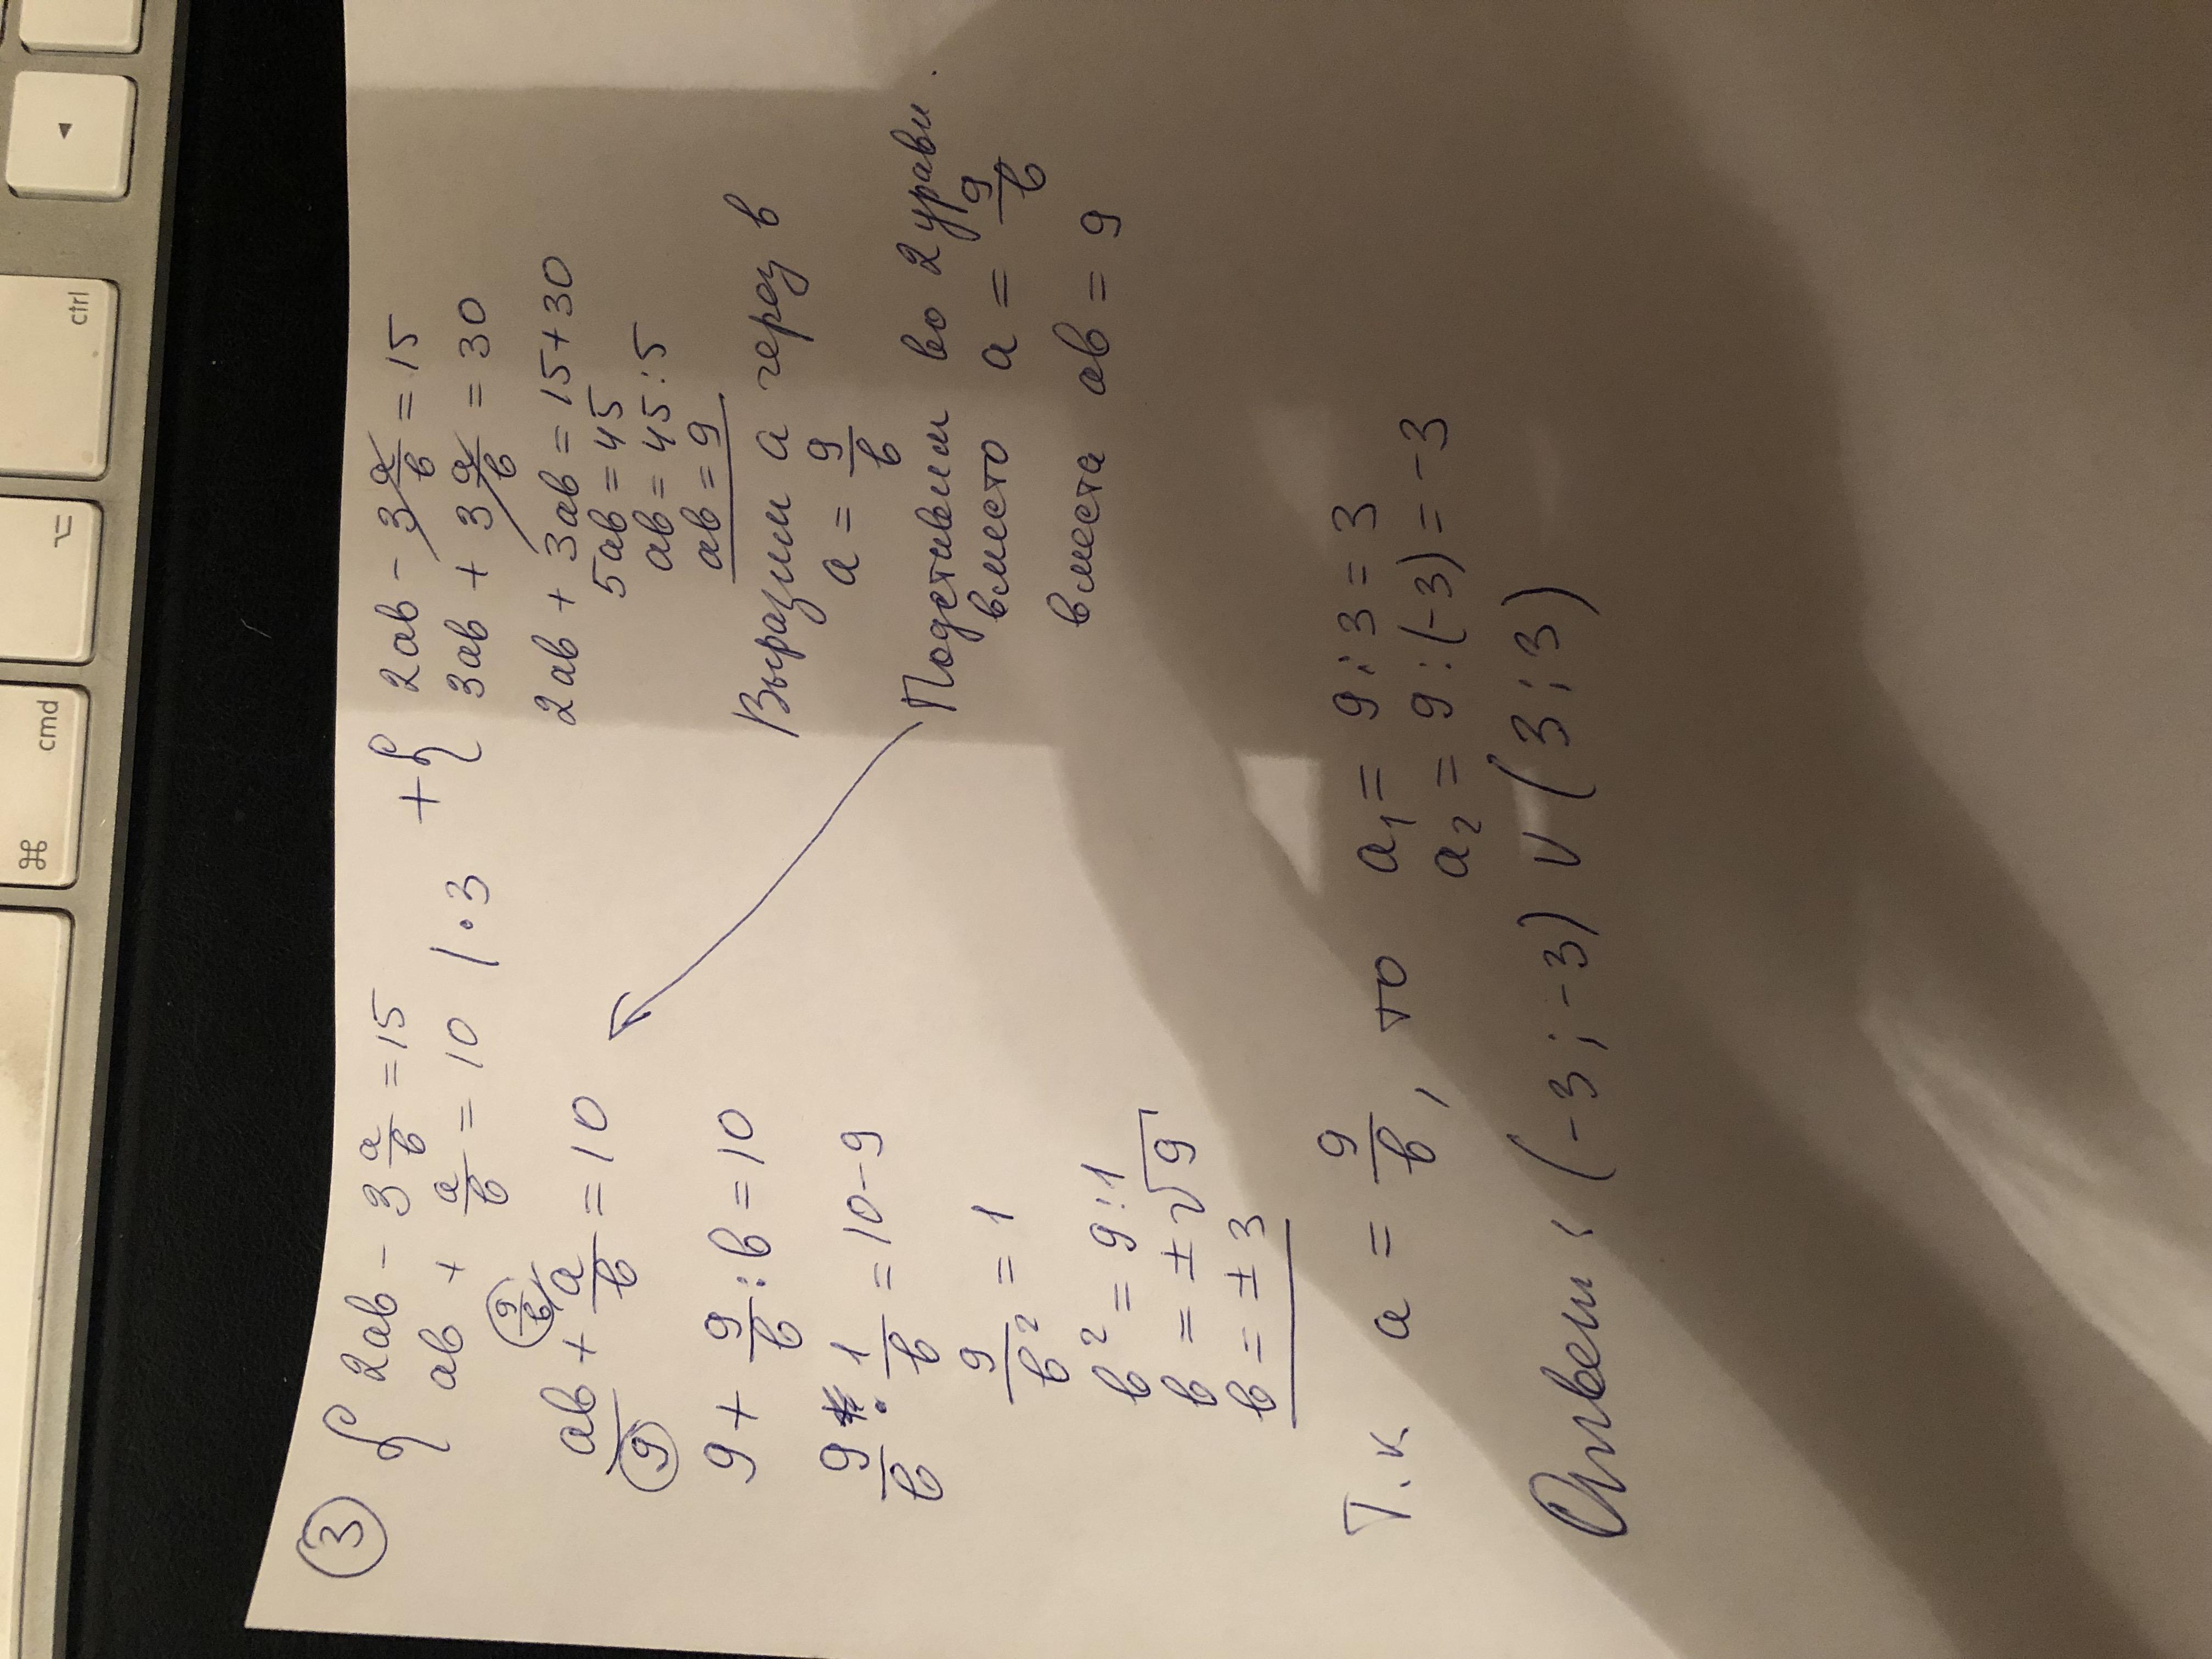 ③ { 2ab - 3 a/b = 15
ab + a/b = 10 | · 3
+ { 2ab - 3 a/b = 15
3ab + 3 a/b = 30
2ab + 3ab = 15 + 30
5ab = 45
ab = 45 : 5
ab = 9
Выразим a через b
a = 9/b
Подставим во 2 уравн.
вместо a = 9/b
вместа ab = 9
9/b
ab + a/b = 10
9
9 + 9/b : b = 10
9/b · 1/b = 10 - 9
9/b² = 1
b² = 9 : 1
b = ± √9
b = ± 3
Т.к a = 9/b, то a₁ = 9 : 3 = 3
a₂ = 9 : (-3) = -3
Ответ: (-3 ; -3) ∨ (3 ; 3)
cmd
⌘
⌥
ctrl
◄